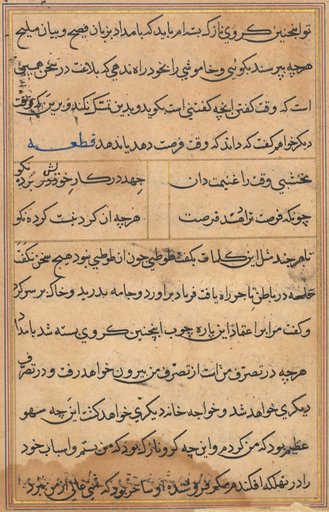 تو اینچنین کروی ناز که بسته‌ام باید که بامداد بزبان فصیح و بیان ملیح
هرچه بپرسند بگوئی و خاموشی را بخود راه ندهی که بلاغت در سخن همین
است که وقت گفتن آنچه گفتنی است بگوید و بدین تمسک نکند و
دیگر خواهم گفت که داند که وقت فرصت دهد یا ندهد قطعه
نخشبی وقت را غنیمت دان جهد در کار خود نکو
چونکه فرصت ترا دهد فرصت هرچه آن کردنیست کرده نکو
تاجر چند مثل این کلمات بگفت طوطی چون آن طوطی نبود هیچ سخن نگفت
در باطن تاجر راه یافت فریاد برآورد و جامه بدرید و خاک بر سر کرد
و گفت مرا بر اعتماد این پاره چوب اینچنین کروی بسته شد بامداد
هرچه در تصرف من است از تصرف من بیرون خواهد رفت و در تصرف
دیگری خواهد شد و خواجه خانه دیگری خواهد گشت این چه سهو
عظیم بود که من کردم و این چه کرو ناز که بود که من بستم و اسباب خود
را در مهلکه افکندم مگر بود که از من